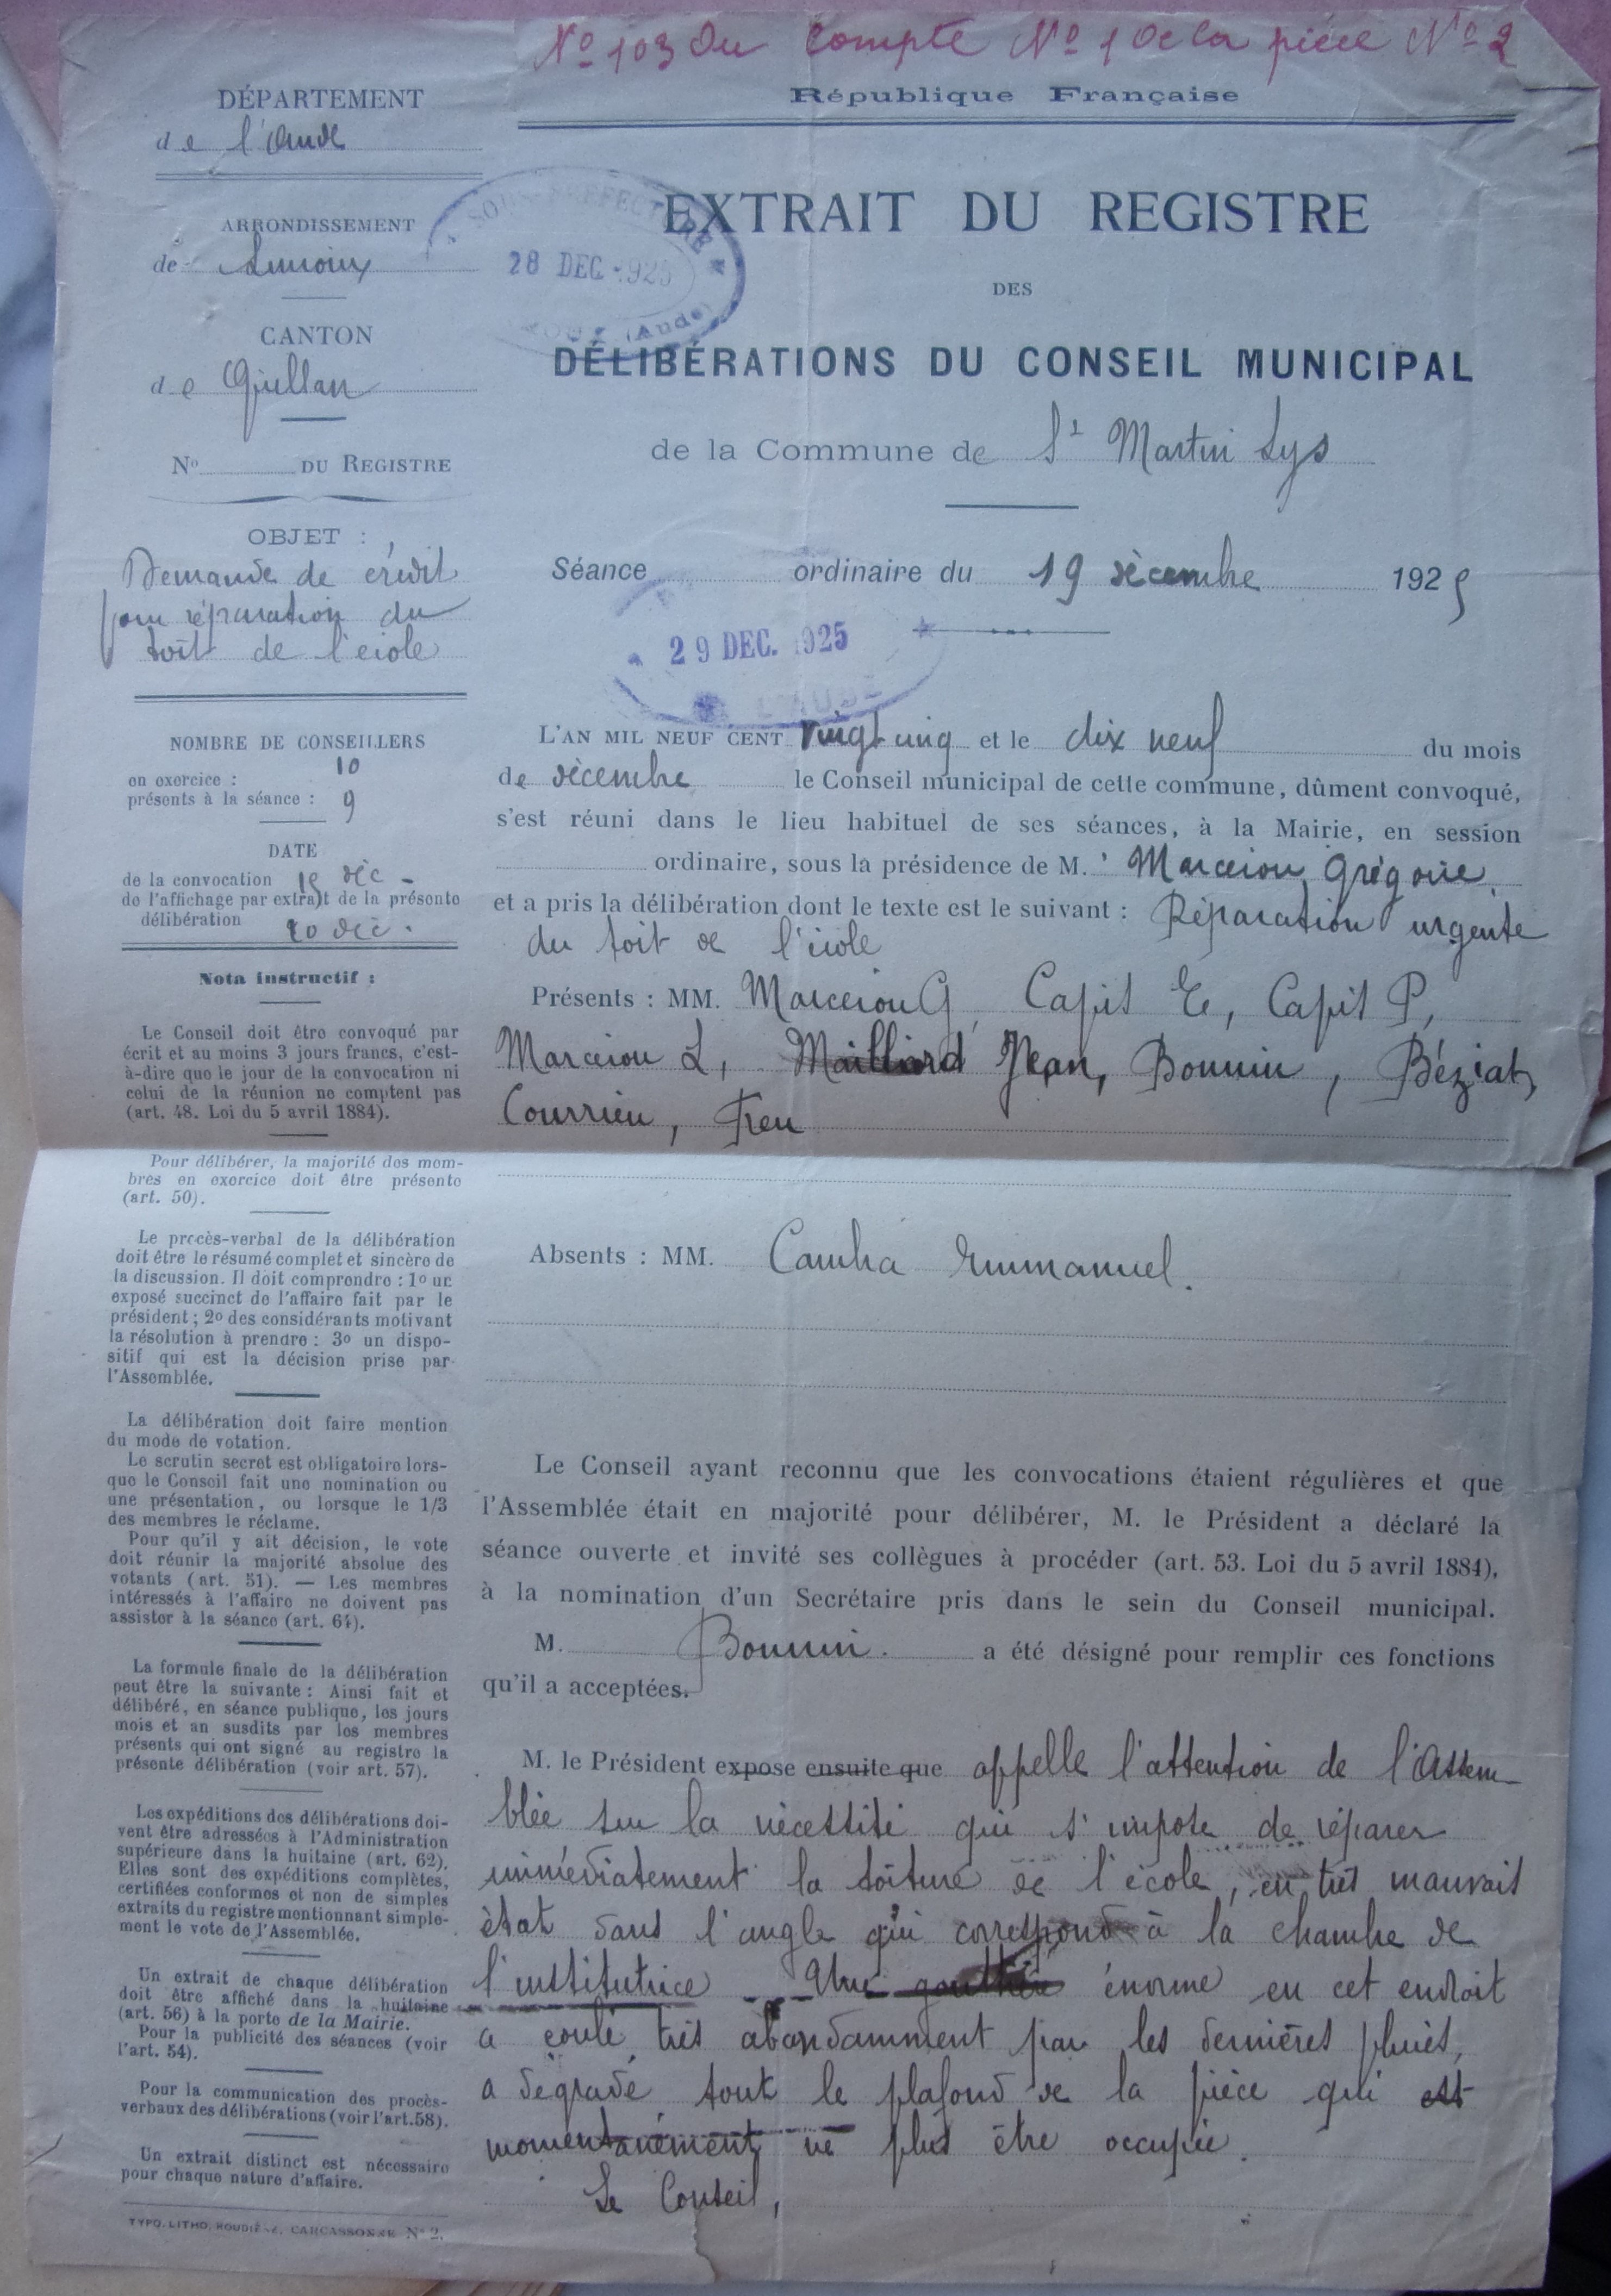 Nº 103 du Compte Nº 1 de la pièce Nº 2
République Française
DÉPARTEMENT
de l'Aude
ARRONDISSEMENT
de Limoux
CANTON
de Quillan
Nº DU REGISTRE
OBJET :
Demande de crédit
pour réparation du
toit de l'école
NOMBRE DE CONSEILLERS
en exercice : 10
présents à la séance : 9
DATE
de la convocation 15 déc -
de l'affichage par extrait de la présente
délibération 20 déc.
Nota instructif :
Le Conseil doit être convoqué par
écrit et au moins 3 jours francs, c'est-
à-dire que le jour de la convocation ni
celui de la réunion ne comptent pas
(art. 48. Loi du 5 avril 1884).
Pour délibérer, la majorité des mem-
bres en exercice doit être présente
(art. 50).
Le procès-verbal de la délibération
doit être le résumé complet et sincère de
la discussion. Il doit comprendre : 1º un
exposé succinct de l'affaire fait par le
président ; 2º des considérants motivant
la résolution à prendre : 3º un dispo-
sitif qui est la décision prise par
l'Assemblée.
La délibération doit faire mention
du mode de votation.
Le scrutin secret est obligatoire lors-
que le Conseil fait une nomination ou
une présentation, ou lorsque le 1/3
des membres le réclame.
Pour qu'il y ait décision, le vote
doit réunir la majorité absolue des
votants (art. 51). — Les membres
intéressés à l'affaire ne doivent pas
assister à la séance (art. 64).
La formule finale de la délibération
peut être la suivante : Ainsi fait et
délibéré, en séance publique, les jours
mois et an susdits par les membres
présents qui ont signé au registre la
présente délibération (voir art. 57).
Les expéditions des délibérations doi-
vent être adressées à l'Administration
supérieure dans la huitaine (art. 62).
Elles sont des expéditions complètes,
certifiées conformes et non de simples
extraits du registre mentionnant simple-
ment le vote de l'Assemblée.
Un extrait de chaque délibération
doit être affiché dans la huitaine
(art. 56) à la porte de la Mairie.
Pour la publicité des séances (voir
l'art. 54).
Pour la communication des procès-
verbaux des délibérations (voir l'art. 58).
Un extrait distinct est nécessaire
pour chaque nature d'affaire.
TYPO. LITHO. ROUDIÈRE, CARCASSONNE Nº 2.
SOUS-PRÉFECTURE
28 DEC. 1925
(Aude)
EXTRAIT DU REGISTRE
DES
DÉLIBÉRATIONS DU CONSEIL MUNICIPAL
de la Commune de St Martin Lys
Séance ordinaire du 19 décembre 1925
29 DEC. 1925
L'AUDE
L'AN MIL NEUF CENT vingt cinq et le dix neuf du mois
de décembre le Conseil municipal de cette commune, dûment convoqué,
s'est réuni dans le lieu habituel de ses séances, à la Mairie, en session
ordinaire, sous la présidence de M. Marcerou Grégoire
et a pris la délibération dont le texte est le suivant : Réparation urgente
du toit de l'école
Présents : MM. Marcerou G, Capit E, Capit P,
Marcerou L, Mailliard Jean, Bonnin, Béziat,
Courrieu, Freu
Absents : MM. Emmanuel.
Le Conseil ayant reconnu que les convocations étaient régulières et que
l'Assemblée était en majorité pour délibérer, M. le Président a déclaré la
séance ouverte et invité ses collègues à procéder (art. 53. Loi du 5 avril 1884),
à la nomination d'un Secrétaire pris dans le sein du Conseil municipal.
M. Bonnin. a été désigné pour remplir ces fonctions
qu'il a acceptées.
M. le Président expose ensuite que appelle l'attention de l'Assem-
blée sur la nécessité qui s'impose de réparer
immédiatement la toiture de l'école, en très mauvais
état dans l'angle qui correspond à la chambre de
l'institutrice. Une gouttière énorme en cet endroit
a coulé très abondamment par les dernières pluies,
a dégradé tout le plafond de la pièce qui est
momentanément ne plus être occupée.
Le Conseil,